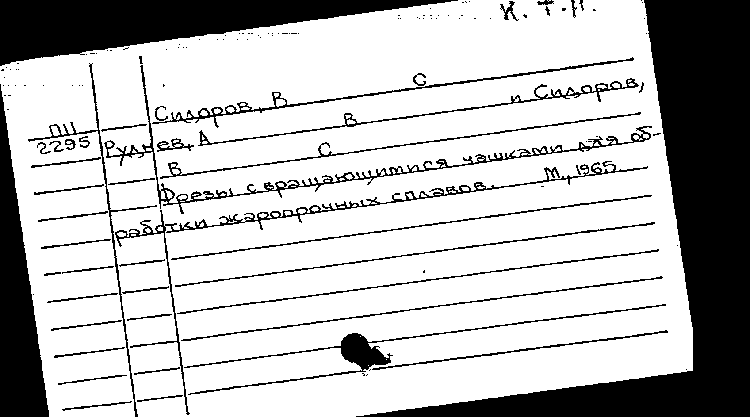 К. Т. Н.
Сидоров, В С
П11
2295 Руднев, А В и Сидоров,
В С
Фрезы с вращающимися чашками для об-
работки жаропрочных сплавов. М., 1965